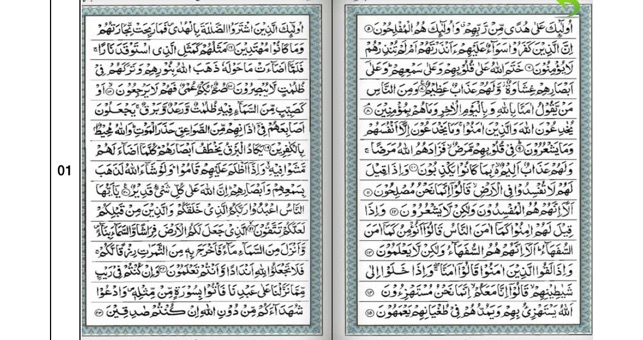 اُولٰٓئِكَ عَلٰى هُدًى مِّنْ رَّبِّهِمْ وَاُولٰٓئِكَ هُمُ الْمُفْلِحُوْنَ ۝۵
اِنَّ الَّذِيْنَ كَفَرُوْا سَوَآءٌ عَلَيْهِمْ ءَاَنْذَرْتَهُمْ اَمْ لَمْ تُنْذِرْهُمْ
لَا يُؤْمِنُوْنَ ۝۶ خَتَمَ اللّٰهُ عَلٰى قُلُوْبِهِمْ وَعَلٰى سَمْعِهِمْ وَعَلٰٓى
اَبْصَارِهِمْ غِشَاوَةٌ وَّلَهُمْ عَذَابٌ عَظِيْمٌ ۝۷ وَمِنَ النَّاسِ
مَنْ يَّقُوْلُ اٰمَنَّا بِاللّٰهِ وَبِالْيَوْمِ الْاٰخِرِ وَمَا هُمْ بِمُؤْمِنِيْنَ ۝۸
يُخٰدِعُوْنَ اللّٰهَ وَالَّذِيْنَ اٰمَنُوْا وَمَا يَخْدَعُوْنَ اِلَّآ اَنْفُسَهُمْ
وَمَا يَشْعُرُوْنَ ۝۹ فِيْ قُلُوْبِهِمْ مَّرَضٌ فَزَادَهُمُ اللّٰهُ مَرَضًا
وَلَهُمْ عَذَابٌ اَلِيْمٌ بِمَا كَانُوْا يَكْذِبُوْنَ ۝۱۰ وَاِذَا قِيْلَ
لَهُمْ لَا تُفْسِدُوْا فِي الْاَرْضِ قَالُوْٓا اِنَّمَا نَحْنُ مُصْلِحُوْنَ ۝۱۱
اَلَآ اِنَّهُمْ هُمُ الْمُفْسِدُوْنَ وَلٰكِنْ لَّا يَشْعُرُوْنَ ۝۱۲ وَاِذَا
قِيْلَ لَهُمْ اٰمِنُوْا كَمَآ اٰمَنَ النَّاسُ قَالُوْٓا اَنُؤْمِنُ كَمَآ اٰمَنَ
السُّفَهَآءُ اَلَآ اِنَّهُمْ هُمُ السُّفَهَآءُ وَلٰكِنْ لَّا يَعْلَمُوْنَ ۝۱۳
وَاِذَا لَقُوا الَّذِيْنَ اٰمَنُوْا قَالُوْٓا اٰمَنَّا وَاِذَا خَلَوْا اِلٰى
شَيٰطِيْنِهِمْ قَالُوْٓا اِنَّا مَعَكُمْ اِنَّمَا نَحْنُ مُسْتَهْزِءُوْنَ ۝۱۴
اَللّٰهُ يَسْتَهْزِئُ بِهِمْ وَيَمُدُّهُمْ فِيْ طُغْيَانِهِمْ يَعْمَهُوْنَ ۝۱۵
اُولٰٓئِكَ الَّذِيْنَ اشْتَرَوُا الضَّلٰلَةَ بِالْهُدٰى فَمَا رَبِحَتْ تِّجَارَتُهُمْ
وَمَا كَانُوْا مُهْتَدِيْنَ ۝۱۶ مَثَلُهُمْ كَمَثَلِ الَّذِي اسْتَوْقَدَ نَارًا
فَلَمَّآ اَضَآءَتْ مَا حَوْلَهٗ ذَهَبَ اللّٰهُ بِنُوْرِهِمْ وَتَرَكَهُمْ فِيْ
ظُلُمٰتٍ لَّا يُبْصِرُوْنَ ۝۱۷ صُمٌّۢ بُكْمٌ عُمْيٌ فَهُمْ لَا يَرْجِعُوْنَ ۝۱۸ اَوْ
كَصَيِّبٍ مِّنَ السَّمَآءِ فِيْهِ ظُلُمٰتٌ وَّرَعْدٌ وَّبَرْقٌ يَجْعَلُوْنَ
اَصَابِعَهُمْ فِيْٓ اٰذَانِهِمْ مِّنَ الصَّوَاعِقِ حَذَرَ الْمَوْتِ وَاللّٰهُ مُحِيْطٌۢ
بِالْكٰفِرِيْنَ ۝۱۹ يَكَادُ الْبَرْقُ يَخْطَفُ اَبْصَارَهُمْ كُلَّمَآ اَضَآءَ لَهُمْ
مَّشَوْا فِيْهِ وَاِذَآ اَظْلَمَ عَلَيْهِمْ قَامُوْا وَلَوْ شَآءَ اللّٰهُ لَذَهَبَ
بِسَمْعِهِمْ وَاَبْصَارِهِمْ اِنَّ اللّٰهَ عَلٰى كُلِّ شَيْءٍ قَدِيْرٌ ۝۲۰ يٰٓاَيُّهَا
النَّاسُ اعْبُدُوْا رَبَّكُمُ الَّذِيْ خَلَقَكُمْ وَالَّذِيْنَ مِنْ قَبْلِكُمْ
لَعَلَّكُمْ تَتَّقُوْنَ ۝۲۱ الَّذِيْ جَعَلَ لَكُمُ الْاَرْضَ فِرَاشًا وَّالسَّمَآءَ بِنَآءً
وَّاَنْزَلَ مِنَ السَّمَآءِ مَآءً فَاَخْرَجَ بِهٖ مِنَ الثَّمَرٰتِ رِزْقًا لَّكُمْ
فَلَا تَجْعَلُوْا لِلّٰهِ اَنْدَادًا وَّاَنْتُمْ تَعْلَمُوْنَ ۝۲۲ وَاِنْ كُنْتُمْ فِيْ رَيْبٍ
مِّمَّا نَزَّلْنَا عَلٰى عَبْدِنَا فَاْتُوْا بِسُوْرَةٍ مِّنْ مِّثْلِهٖ وَادْعُوْا
شُهَدَآءَكُمْ مِّنْ دُوْنِ اللّٰهِ اِنْ كُنْتُمْ صٰدِقِيْنَ ۝۲۳
01